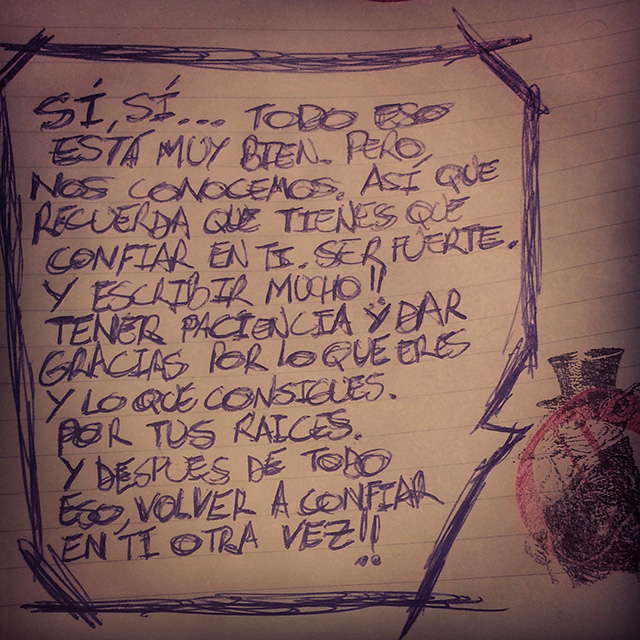 SÍ, SÍ... TODO ESO
ESTÁ MUY BIEN. PERO
NOS CONOCEMOS. ASÍ QUE
RECUERDA QUE TIENES QUE
CONFIAR EN TI. SER FUERTE.
Y ESCRIBIR MUCHO!!
TENER PACIENCIA Y DAR
GRACIAS POR LO QUE ERES
Y LO QUE CONSIGUES.
POR TUS RAICES.
Y DESPUES DE TODO
ESO, VOLVER A CONFIAR
EN TI OTRA VEZ!!